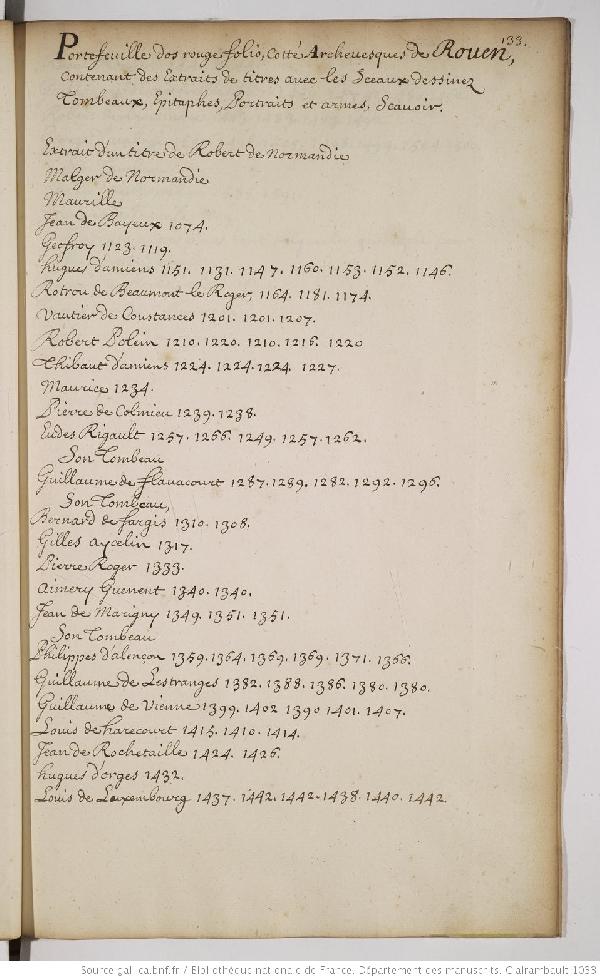 133.
Portefeuille dos rouge folio, Cotté Archeuesques de Rouen,
Contenant des Extraits de titres auec les Sceaux dessinez
Tombeaux, Epitaphes, Portraits et armes, Scauoir.
Extrait d'un titre de Robert de Normandie
Malger de Normandie
Maurille
Jean de Bayeux 1074.
Geofroy 1123. 1119.
hugues d'amiens 1151. 1131. 1147. 1160. 1153. 1152. 1146.
Rotrou de Beaumont le Roger, 1164. 1181. 1174.
Vautier de Coustances 1201. 1201. 1207.
Robert Polein 1210. 1220. 1210. 1216. 1220
Thibaut d'amiens 1224. 1224. 1224. 1227.
Maurice 1234.
Pierre de Colmieu 1239. 1238.
Eudes Rigault 1257. 1266. 1249. 1257. 1262.
Son Tombeau
Guillaume de flauacourt 1287. 1289. 1282. 1292. 1296.
Son Tombeau,
Bernard de fargis 1310. 1308.
Gilles aycelin 1317.
Pierre Roger 1333.
Aimery Guenent 1340. 1340.
Jean de Marigny 1349. 1351. 1351.
Son Tombeau
Philippes d'alençon 1359. 1364. 1369. 1369. 1371. 1366.
Guillaume de Lestranges 1382. 1388. 1386. 1380. 1380.
Guillaume de Vienne 1399. 1402 1390 1401. 1407.
Louis de harecourt 1415. 1410. 1414.
Jean de Rochetaille 1424. 1426.
hugues d'orges 1432.
Louis de Luxembourg 1437. 1442. 1442. 1438. 1440. 1442.
Source gallica.bnf.fr / Bibliothèque nationale de France. Département des manuscrits. Clairambault 1033